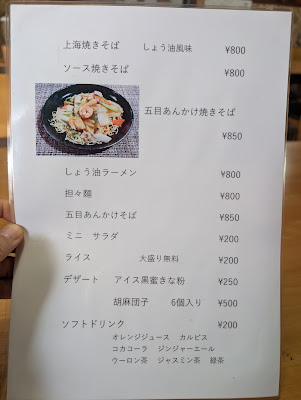 上海焼きそば しょう油風味 ¥800
ソース焼きそば ¥800
五目あんかけ焼きそば
¥850
しょう油ラーメン ¥800
担々麺 ¥800
五目あんかけそば ¥850
ミニ サラダ ¥200
ライス 大盛り無料 ¥200
デザート アイス黒蜜きな粉 ¥250
胡麻団子 6個入り ¥500
ソフトドリンク ¥200
オレンジジュース カルピス
コカコーラ ジンジャーエール
ウーロン茶 ジャスミン茶 緑茶